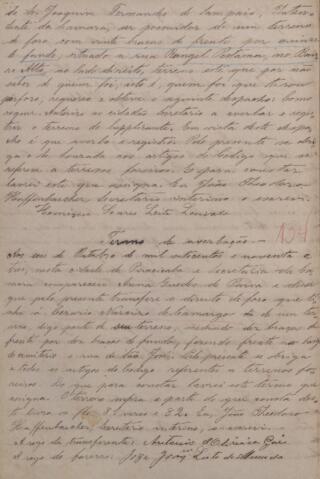 de de Joaquim Fernando de Sampaio,
data da Camara, ser possuidor de um terreno
de fóro com vinte braças de frente por quinze
de fundo, situado a rua Rangel Pestana, no Bair
ro Alto, no lado direito, terreno este que por não
saber de quem foi, isto é, quem foi que tirou
por fóro, requereu e obteve o seguinte despacho: Como
requer. Autorizo ao cidadão Secretario a averbar e regis
trar o terreno do supplicante. Em vista deste despa
cho é que averbo e registro. Pelo presente se obri
ga a de baixada nos artigos do Codigo que se
refere a terrenos foreiros. E para constar
lavrei este que assigna. Eu João Theodoro
Hauffenbaecher, Secretario interino o escrevi.
Francisco Soares Leite
134
Termo de averbação
Aos seis de Outubro de mil oitocentos e noventa e
, nesta cidade de Piracicaba e Secretaria da Ca
mara compareceu Anna Guedes de Barros e disse
que pelo presente transfere o direito de foro que ti
nha á Cezario Nazario de Camargo de um ter
reno, digo parte de seu terreno, incluido dez braças de
frente por dez braças de fundo, fazendo frente no largo
do cemiterio e rua de São José. Pelo presente se obriga
a todos os artigos do Codigo referente a terrenos fo
reiros. Do que para constar lavrei este termo que
assigna. O terreno supra a parte do que consta des
te livro a fls. 81 verso e 82. Eu, João Theodoro
Hauffenbaecher, Secretario interino, o escrevi.
A rogo da transferente: Antonio
A rogo do foreiro: João José Leite de Almeida